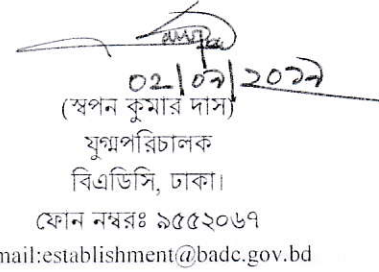 ০২|০৭|২০১৯
(স্বপন কুমার দাস)
যুগ্মপরিচালক
বিএডিসি, ঢাকা।
ফোন নম্বরঃ ৯৫৫২০৬৭
mail:establishment@badc.gov.bd